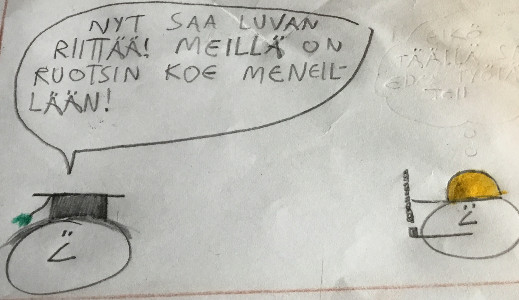 NYT SAA LUVAN
RIITTÄÄ! MEILLÄ ON
RUOTSIN KOE MENEIL-
LÄÄN!
TÄÄLLÄ